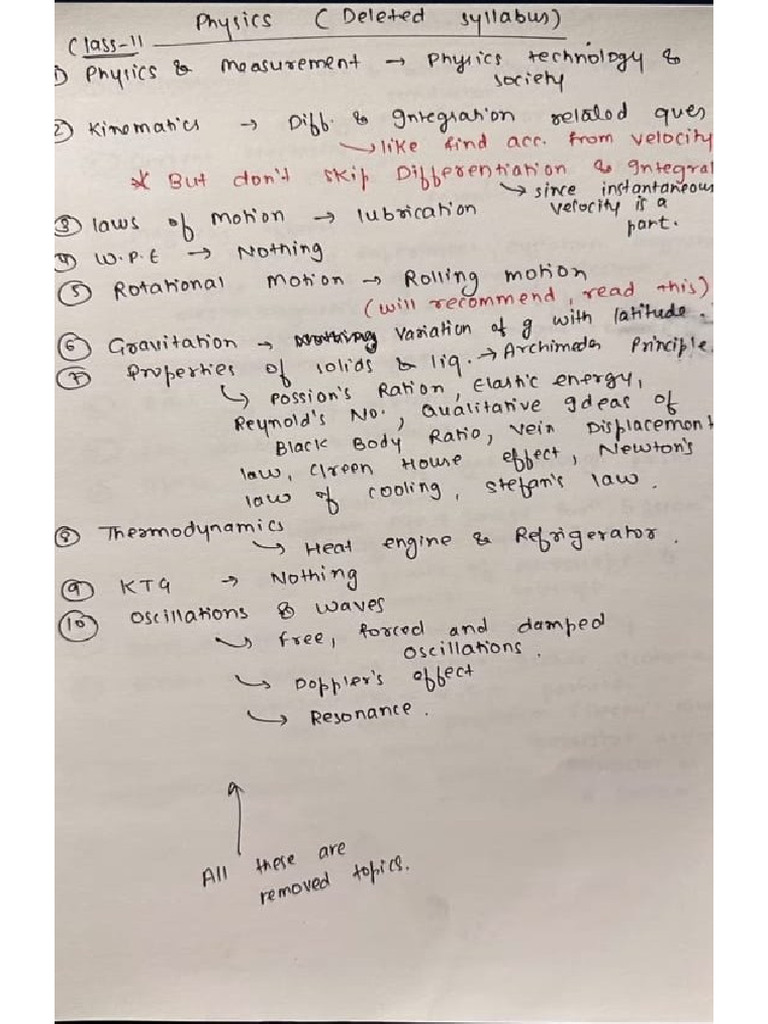 Physics (Deleted syllabus)
Class-11
1) Physics & measurement → Physics technology &
society
2) Kinematics → Diff. & Integration related ques
→ like find acc. from velocity
* But don't skip Differentiation & Integral
→ since instantaneous
velocity is a
part.
3) laws of motion → lubrication
4) W.P.E → Nothing
5) Rotational Motion → Rolling motion
(will recommend, read this)
6) Gravitation → Variation of g with latitude.
7) Properties of solids & liq. → Archimedes Principle.
→ Possion's Ration, Elastic energy,
Reynold's No., Qualitative Ideas of
Black Body Ratio, Vein Displacement
law, Green House effect, Newton's
law of cooling, Stefan's law.
8) Thermodynamics
→ Heat engine & Refrigerator.
9) KTG → Nothing
10) Oscillations & waves
→ Free, forced and damped
oscillations.
→ Doppler's effect
→ Resonance.
All these are
removed topics.